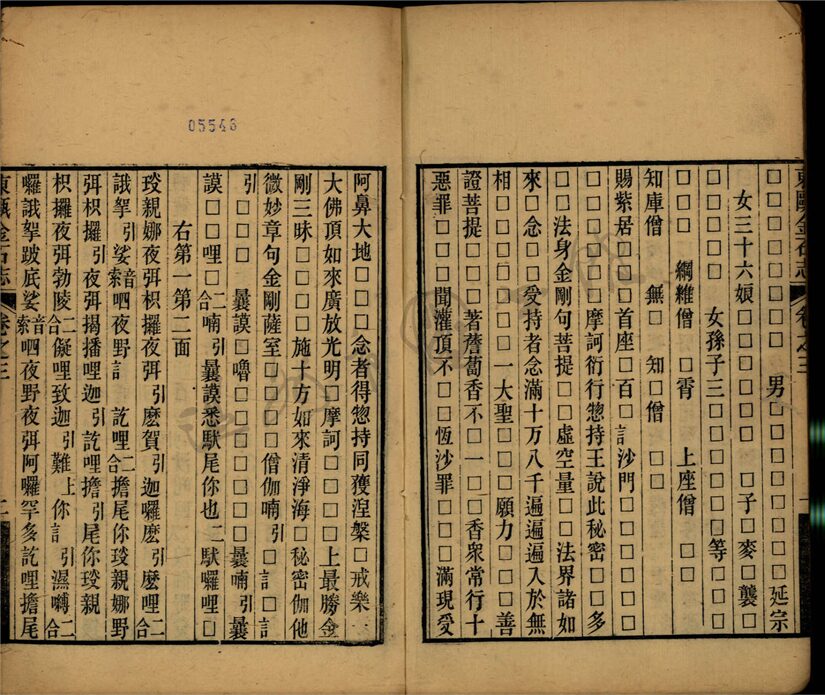 東甌金石志 卷之三 一
□□□□□□□□□□□ 男□□□□□□延宗
女三十六娘□□□□□□□子□麥□龔□
女孫子三□□□□□等□□□
□□□ 綱維僧 □霄 上座僧 □□
知庫僧 無□ 知□僧 □□
賜紫居□□□□首座□百□訁沙門□□□□
□□□□□□□摩訶衍行惣持王說此秘密□□□多
□□法身金剛句菩提□□□虛空量□□法界諸如
來□念□□受持者念滿十万八千遍遍遍入於無
相□□□□□□一大聖□□□□願力□□□□善
證菩提□□□著薝蔔香不□一□□香衆常行十
惡罪□□□聞灌頂不□□恆沙罪□□□滿現受
05543
阿鼻大地□□□□念者得惣持同獲涅槃□戒樂一
大佛頂如來廣放光明□摩訶□□□□上最勝金
剛三昧□□□□施十方如來清淨海□秘密伽他
微妙章句金剛薩室□□□□僧伽喃引□訁□訁
引□□□□ 曩謨□嚕□□□□□□曩喃引曩
謨□□□哩□二合喃引曩謨悉馱尾你也二馱囉哩□
右第一第二面
琰親娜夜弭枳攞夜弭引麽賀引迦囉麽引麽哩二
誐拏引娑音索呬夜野訁 訖哩二合擔尾你琰親娜野
弭枳攞引夜弭揭播哩迦引訖哩擔引尾你琰親
枳攞夜弭勃陵二合儗哩致迦引難上你訁引濕嚩二合
囉誐拏跛底娑音索呬夜野夜弭阿囉罕多訖哩擔尾
東甌金石志 卷之三 二